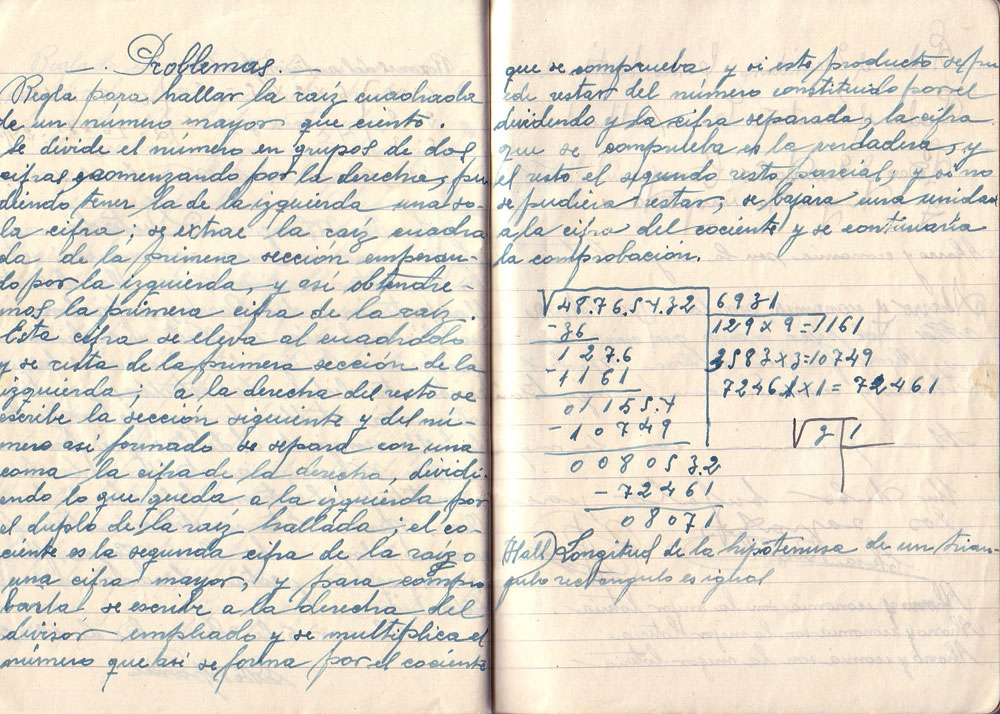 Problemas.
Regla para hallar la raiz cuadrada
de un número mayor que ciento.
Se divide el número en grupos de dos
cifras, comenzando por la derecha, pu
diendo tener la de la izquierda una so-
la cifra; se extrae la raiz cuadra
da de la primera sección empezan-
do por la izquierda, y así obtendre-
mos la primera cifra de la raiz.
Esta cifra se eleva al cuadrado
y se resta de la primera sección de la
izquierda; a la derecha del resto se
escribe la sección siguiente y del nú-
mero así formado se separa con una
coma la cifra de la derecha, dividi-
endo lo que queda a la izquierda por
el duplo de la raiz hallada; el co-
ciente es la segunda cifra de la raiz o
una cifra mayor, y para compro
barla se escribe a la derecha del
divisor empleado y se multiplica el
número que así se forma por el cociente
que se comprueba y si este producto se pu
ede restar del número constituido por el
dividendo y la cifra separada, la cifra
que se comprueba es la verdadera, y
el resto el segundo resto parcial, y si no
se pudiera restar, se bajara una unidad
a la cifra del cociente y se continuaría
la comprobación.
√48.76.54.32 6931
-36 129 x 9 = 1161
1 27.6 3583 x 3 = 10749
-1161 72461 x 1 = 72461
01155.4
-10749 √9 1
008053.2
-72461
08071
(Hall) Longitud de la hipotenusa de un trian-
gulo rectangulo es igual